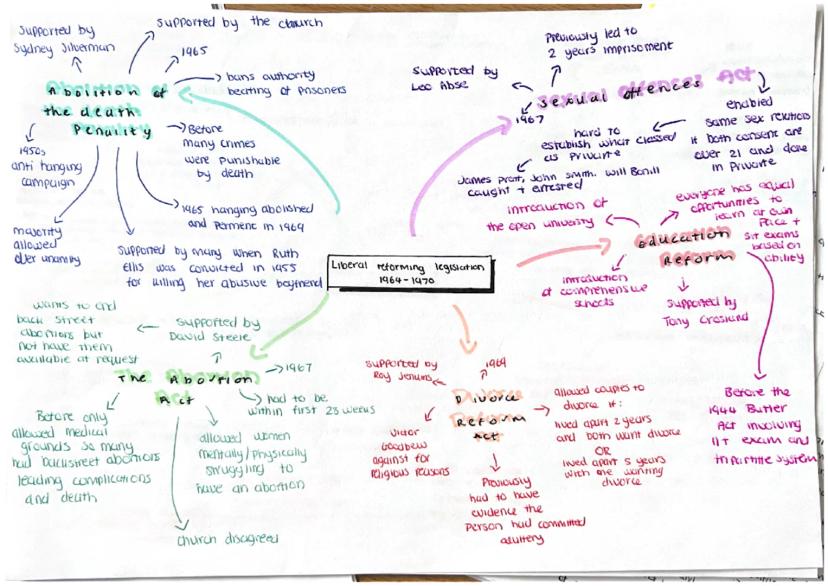 Supported by
Sydney Silberman
Supported by the church
1965
bans authority
beating of prisoners
Abolition of
the death
Penalitly
Before
many crimes
were punishable
by death
1950s
anti hanging
campaign
majority
allowed
over unanimity
Supported by many when Ruth
Ellis was convicted in 1955
for killing her abusive boyfriend
1965 hanging abolished
and Permenent in 1969
Previously led to
2 years imprisoment
Supported by
Leo Abse
Sexual offences Act
1967
enabled
same sex relations
if both consent are
over 21 and done
in Private
hard to
establish what classed
as Private
James Pratt, John Smith, Will Bonill
caught + arrested
Liberal reforming legislation
1964-1970
introduction of
the open university
everyone has equal
opportunities to
learn at own
Pace +
sit exams
based on
ability
Education
Reform
introduction
of comprehensive
schools
Supported by
Tony Crosland
Before the
1944 Butler
Act involving
11+ exam and
tripartite system
wants to end
back street
abortions but
not have them
available at request
Supported by
David Steele
1967
The Abortion
Act
had to be
within first 28 weeks
Before only
allowed medical
grounds so many
had backstreet abortions
leading complications
and death
allowed women
mentally/physically
struggling to
have an abortion
church disagreed
Supported by
Roy Jenkins
1969
Divorce
Reform
Act
allowed couples to
divorce if:
lived apart 2 years
and both want divorce
OR
lived apart 5 years
with one wanting
divorce
Victor
Goodhew
against for
religious reasons
Previously
had to have
evidence the
Person had committed
adultery